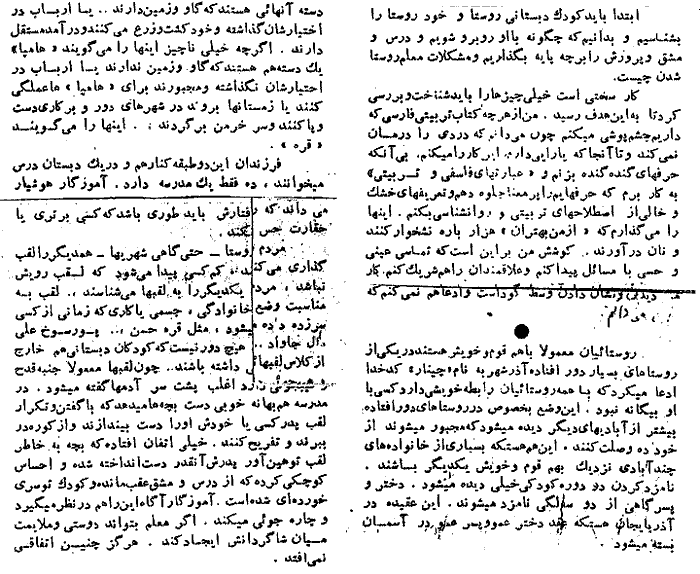 ابتدا باید کودک دبستانی روستا و خود روستا را
بشناسیم و بدانیم که چگونه با او روبرو شویم و درس و
مشق و پرورش را بر چه پایه بگذاریم و مشکلات معلم روستا
شدن چیست.
کار سختی است خیلی چیزها را باید شناخت و بررسی
کرد تا به این هدف رسید . من از هر چه کتاب تربیتی فارسی که
داریم چشم پوشی میکنم چون می دانم که دردی را درمان
نمی کند و تا آنجا که یارایی دارم این کار را میکنم، بی آنکه
حرفهای گنده گنده بزنم و «عبارتهای فلسفی و تربیتی»
به کار برم که حرفهایم را پر معنا جلوه دهم و تعریفهای خشک
و خالی از اصطلاحهای تربیتی و روانشناسی بکنم . اینها
را می گذارم که «از من بهتران» هزار باره نشخوار کنند
و نان در آورند . کوشش من بر این است که تماسی عینی
و حسی با مسائل پیدا کنم و علاقمندان را هم شریک کنم. کار
دیدنی و نشان دادن وسط گود است و ادعا هم نمی کنم که
روستائیان معمولا با هم قوم و خویش هستند در یکی از
روستاهای بسیار دور افتاده آذر شهر به نام «چینار» کدخدا
ادعا میکرد که با همه روستائیان رابطه خویشی دارد کسی با
او بیگانه نبود . این وضع بخصوص در روستاهای دور افتاده
بیشتر از آبادیهای دیگر دیده میشود که مجبور میشوند از
خود ده وصلت کنند . این هم هست که بسیاری از خانواده های
چند آبادی نزدیک بهم قوم و خویش یکدیگر باشند .
نامزد کردن در دوره کودکی خیلی دیده میشود . دختر و
پسر گاهی از دو سالگی نامزد میشوند . این عقیده در
آذربایجان هست که عقد دختر عمو و پسر عمو در آسمان
بسته میشود .
دسته آنهائی هستند که گاو و زمین دارند .. یا ارباب در
اختیارشان گذاشته و خود کشت و زرع می کنند و در آمد مستقل
دارند . اگر چه خیلی ناچیز اینها را می گویند «هامپا»
یک دسته هم هستند که گاو و زمین ندارند یا ارباب در
اختیارشان نگذاشته و مجبورند برای «هامپا» ها عملگی
کنند یا زمستانها بروند در شهرهای دور و پرکاری دست
و پا کنند و سر خرمن برگردند . . اینها را می گویند
« قره » .
فرزندان این دو طبقه کنار هم و در یک دبستان درس
میخوانند ، ده فقط یک مدرسه دارد . آموزگار هوشیار
می داند که رفتارش باید طوری باشد که کسی برتری یا
حقارت حس نکند .
مردم روستا ــ حتی گاهی شهریها ــ همدیگر را لقب
گذاری می کنند، کم کسی پیدا می شود که لقب رویش
نباشد ، مردم یکدیگر را به لقبها می شناسند .. لقب به
مناسبت وضع خانوادگی ، جسمی یا کاری که زمانی از کسی
سر زده داده میشود ، مثل قره حسن ..
هیچ دور نیست که کودکان دبستانی هم خارج
از کلاس لقبهائی داشته باشند. چون لقبها معمولا جنبه قدح
دارد اغلب پشت سر آدمها گفته میشود . در
مدرسه هم بهانه خوبی دست بچه ها میدهد که با گفتن و تکرار
لقب پدر کسی یا خودش او را دست بیندازند و از کوره در
ببرند و تفریح کنند . خیلی اتفاق افتاده که بچه به خاطر
لقب توهین آور پدرش آنقدر دست انداخته شده و احساس
کوچکی کرده که از درس و مشق عقب مانده و کودک توسری
خورده ای شده است . آموزگار آگاه این را هم در نظر میگیرد
و چاره جوئی میکند . اگر معلم بتواند دوستی و ملایمت
میان شاگردانش ایجاد کند . هرگز چنین اتفاقی
نمی افتد .